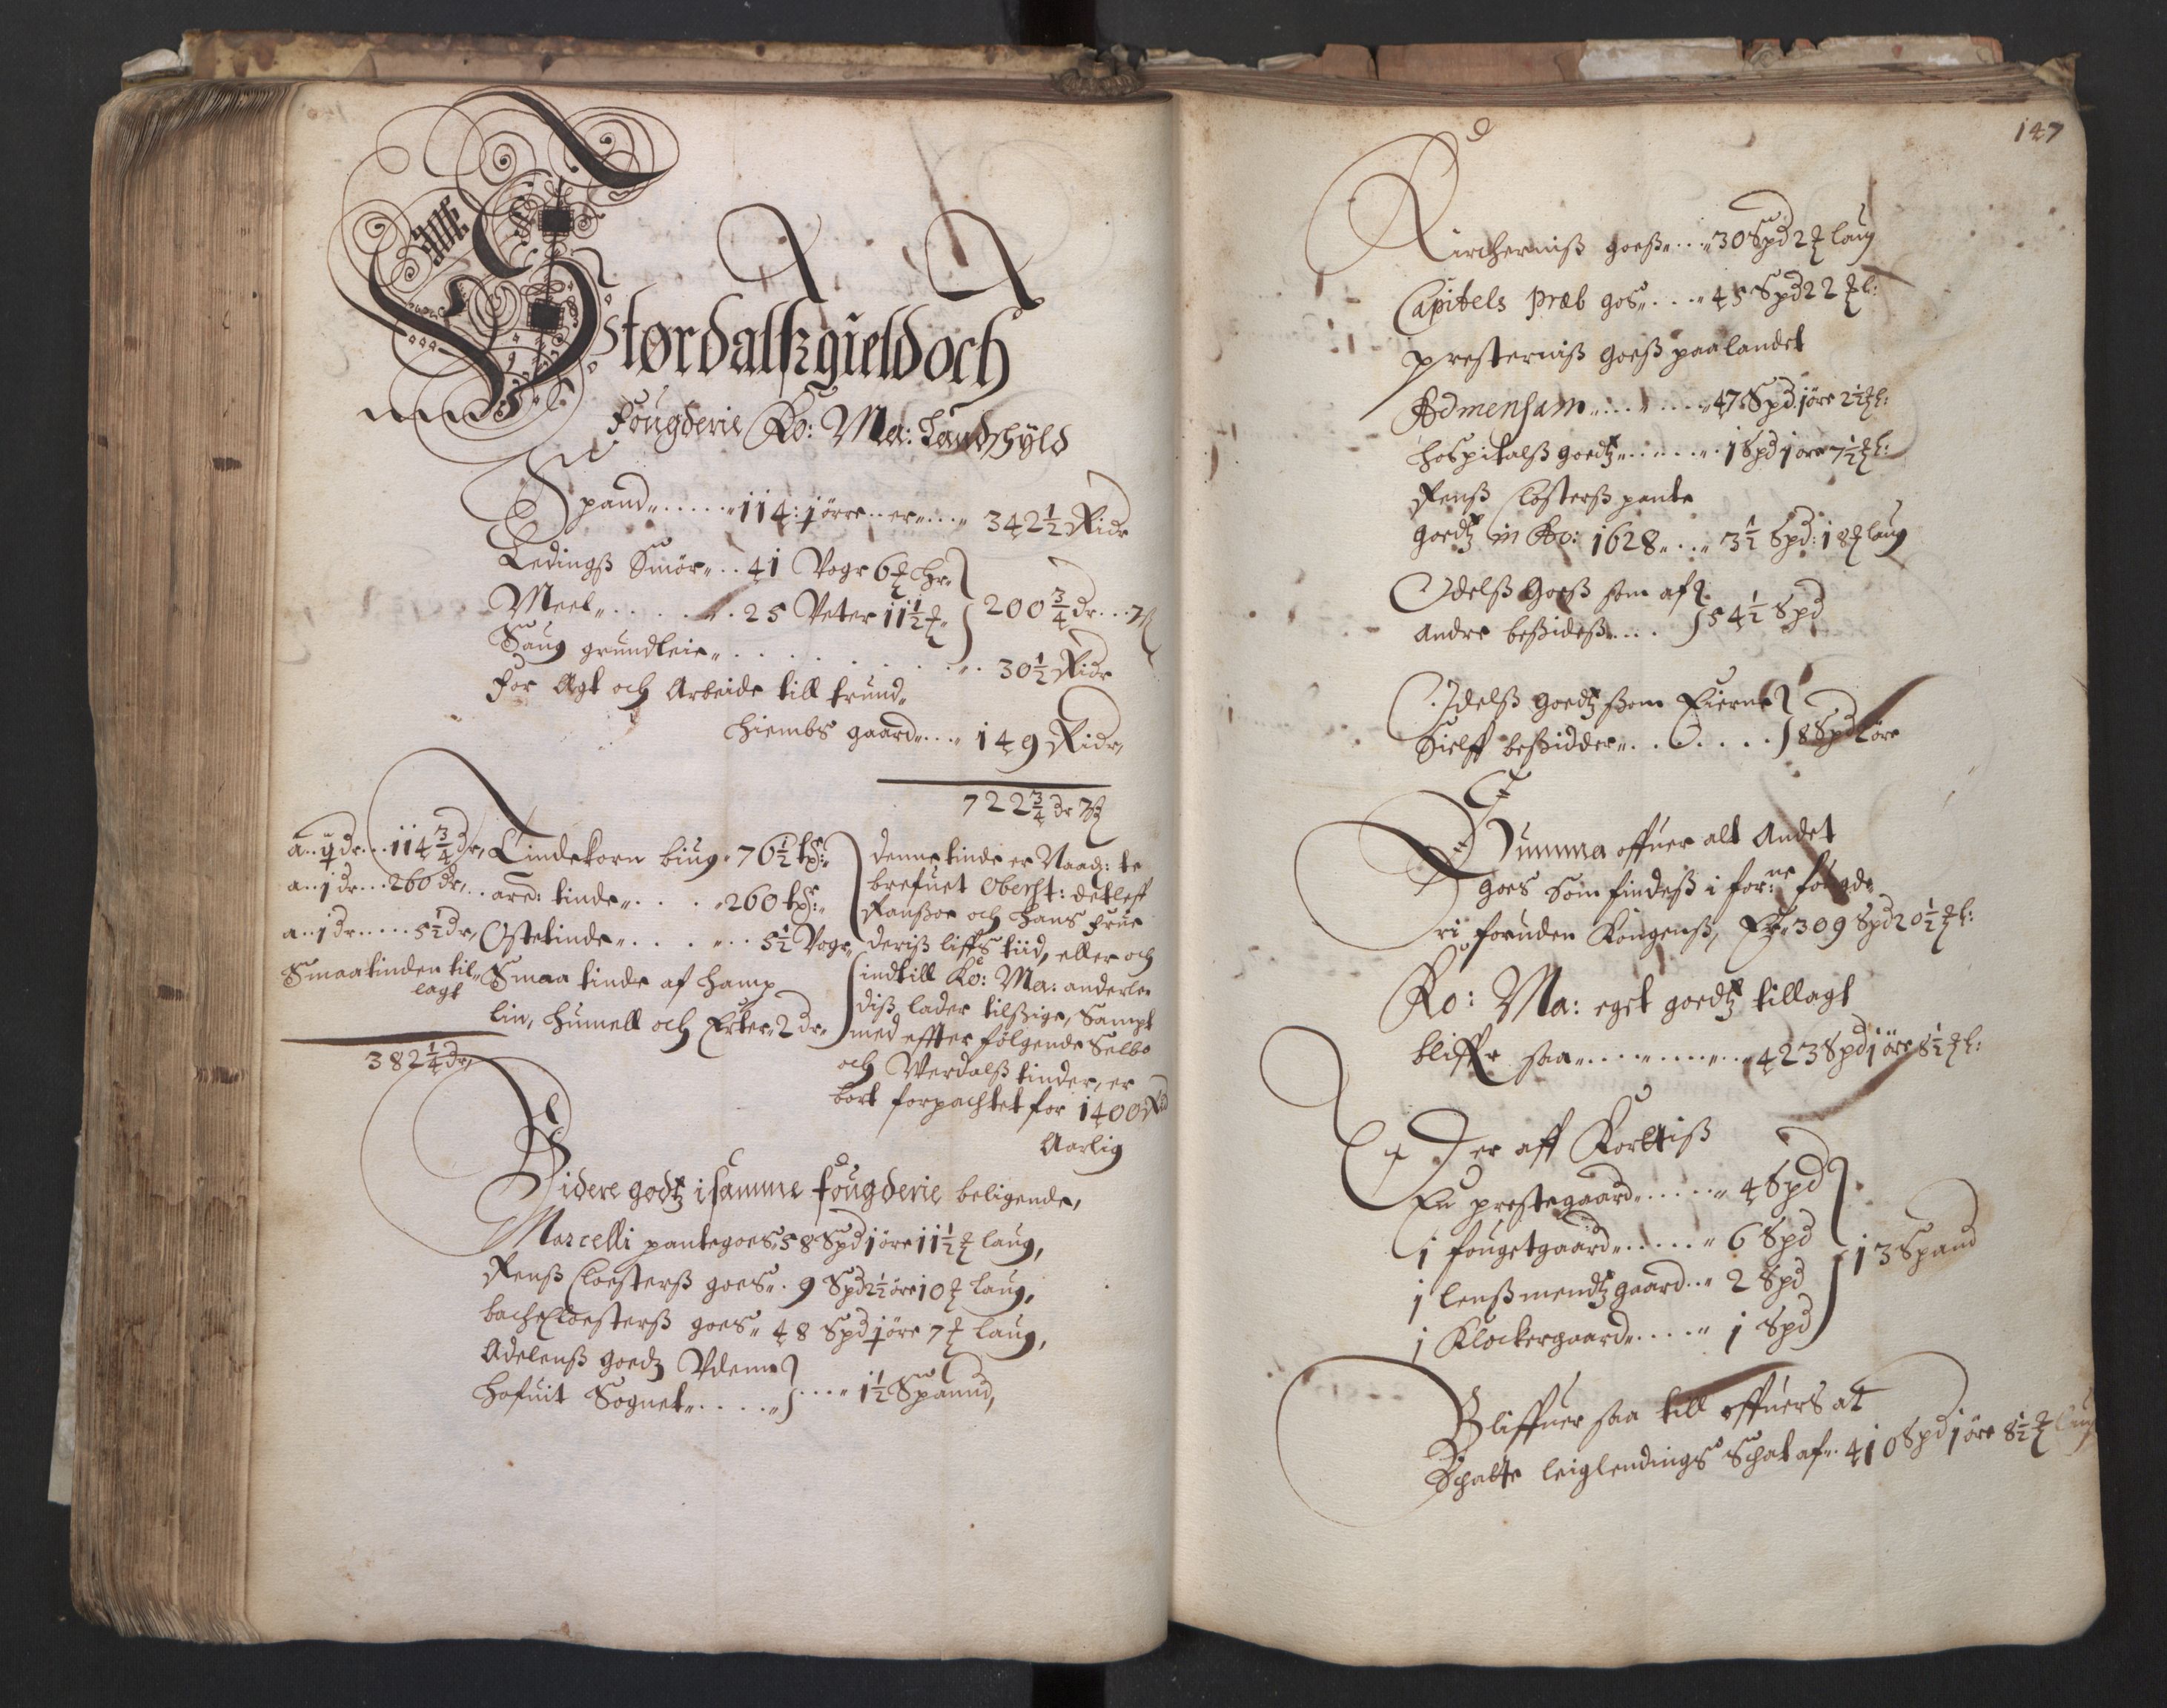 Størdalß gield och
fougderie Ko: Ma: Landschyld
Spand„ . . . . . „ 114: j örre . . er„ . . . „ 342½ Ridr
Ledingß Smör„ . . 41 Vogr 6 ₰ hr.
Meel„ . . . . . „ . 25 Veter 11½ ₰„ 200¾ dr . . . 7 ß
Saug grundleie„ . . . . . . . . „ . . 30½ Ridr
for Agt och Arbeide till trund„
hiembs gaard„ . . . „ 149 Ridr,
722¾ dr 7 ß
a . . ij dr . . . 114¾ dr, Tindekorn biug„ 76½ tr:„
a . . j dr . . . 260 dr, . . ared: tinde„ . . . „ 260 tr:„
a . . j dr . . . . . 5½ dr, Ostetinde„ . . . „ . . 5½ Vogr„
Smaatinden til„ Smaa tinde af hamp
lagt
lin, humell och Erter„ 2 dr„
382¼ dr,
denne tinde er Naad: te
brefuet Oberst: detleff
Ranßoe och hans frue
deriß liffs tiid, eller och
indtill Ko: Ma: anderle„
diß lader tilßige, Sampt
med effter følgende Selbo
och Werdalß tinder, er
bort forpachtet for 1400 Rd
Aarlig
Videre godtz i samme fougderie beligende,
Marcelli pantegoes„ 58 Spd j öre 11½ ₰ laug,
Renß Cloesterß goes„ . 9 Spd 2½ öre 10 ₰ laug,
bache Cloesterß goes„ 48 Spd j öre 7 ₰ laug,
Adelenß goedz Vdenn
hofuit Sognet„ . . . . „ . . . . „ 1½ Spannd,
147
Kircherniß goeß„ . . . „ 30 Spd 2 ₰ laug
Capitels Præb gos„ . . . „ 45 Spd 22 ₰ l:
presterniß goeß paa landet
Ad mensam„ . . . „ . . . „ 47 Spd. j öre 2½ ₰ l:
hospitalß goedtz„ . . . . . „ . 1 Spd j öre 7½ ₰ l:
Renß Closterß pante
goedtz in Ao: 1628„ . . „ 3½ Spd: 18 ₰ laug
Odelß goeß som af
andre beßideß„ . . . 54½ Spd
Odelß goedtz ßom Eierne
Sielff beßidder„ . . . . . . 8 Spd 2 öre
Summa offuer alt Andet
goes som findeß i forne: fougde„
ri foruden Kongenß, Er„ 309 Spd 20½ ₰ l:
Ko: Ma: eget goedtz tillagt
bliffr saa„ . . . . „ . . . . „ . . „ 423 Spd j öre 8½ ₰ l:
Der aff Korttiß
En prestegaard„ . . . . . „ 4 Spd
1 fougetgaard„ . . . . . „ 6 Spd
j lenßmendtz gaard . . „ 2 Spd 13 Spand
j Klockergaard„ . . . . „ 1 Spd
Bliffuer saa till offuers at
Schatte leiglendings Schat af„ . 410 Spd j öre 8½ ₰ laug